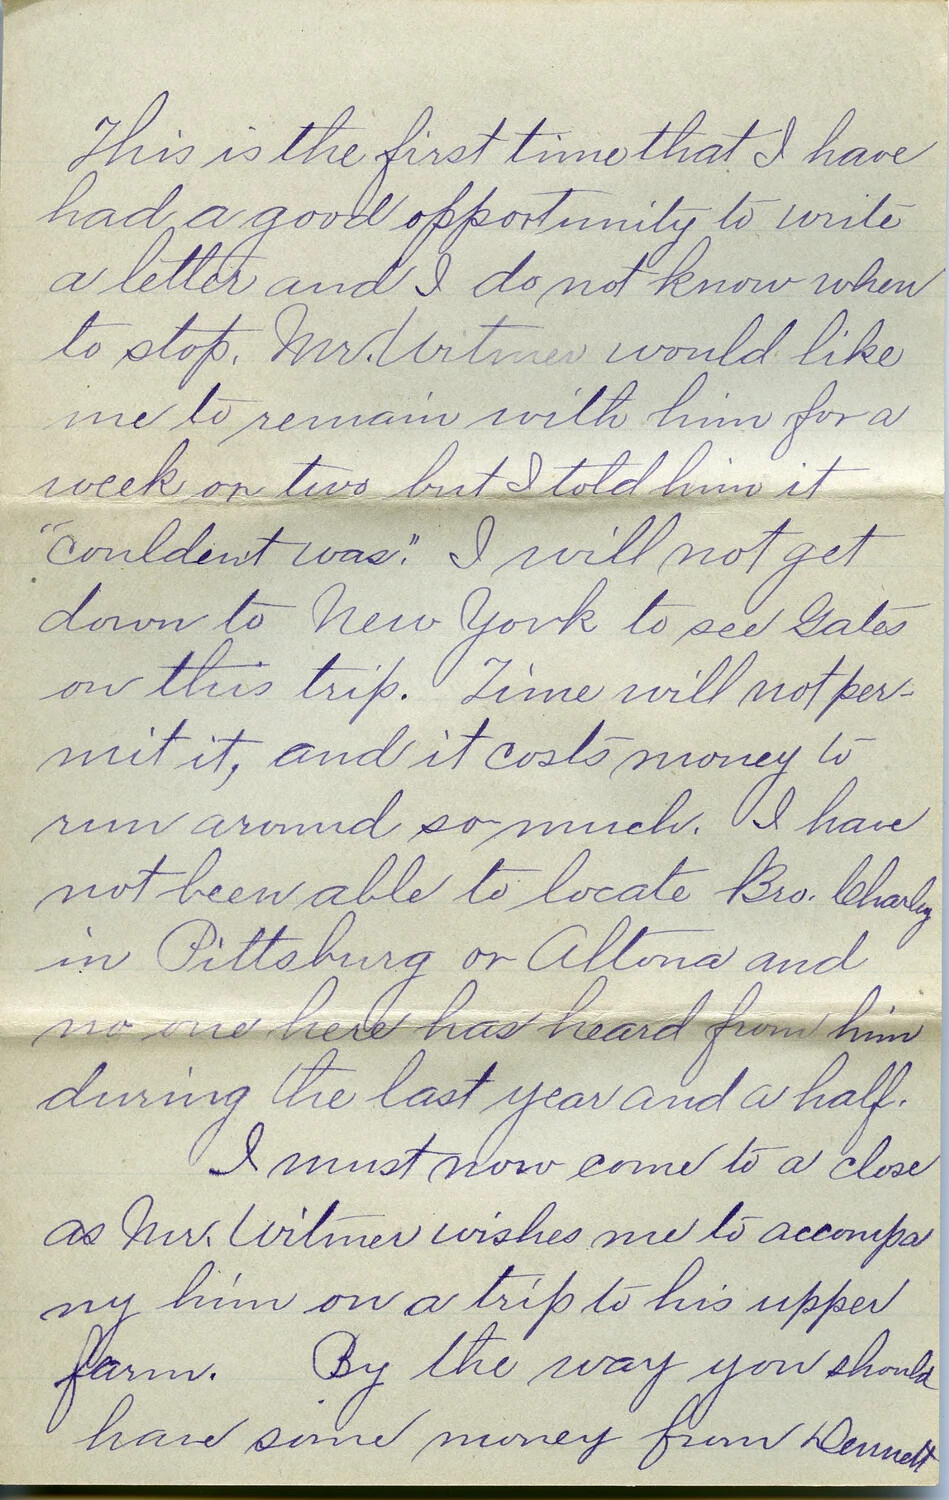 This is the first time that I have
had a good opportunity to write
a letter and I do not know when
to stop. Mr. Witmer would like
me to remain with him for a
week or two but I told him it
"couldent was". I will not get
down to New York to see Gates
on this trip. Time will not per-
mit it, and it costs money to
run around so much. I have
not been able to locate Bro. Charley
in Pittsburg or Altona and
no one here has heard from him
during the last year and a half.
I must now come to a close
as Mr. Witmer wishes me to accompa
ny him on a trip to his upper
farm. By the way you should
have some money from Dennett